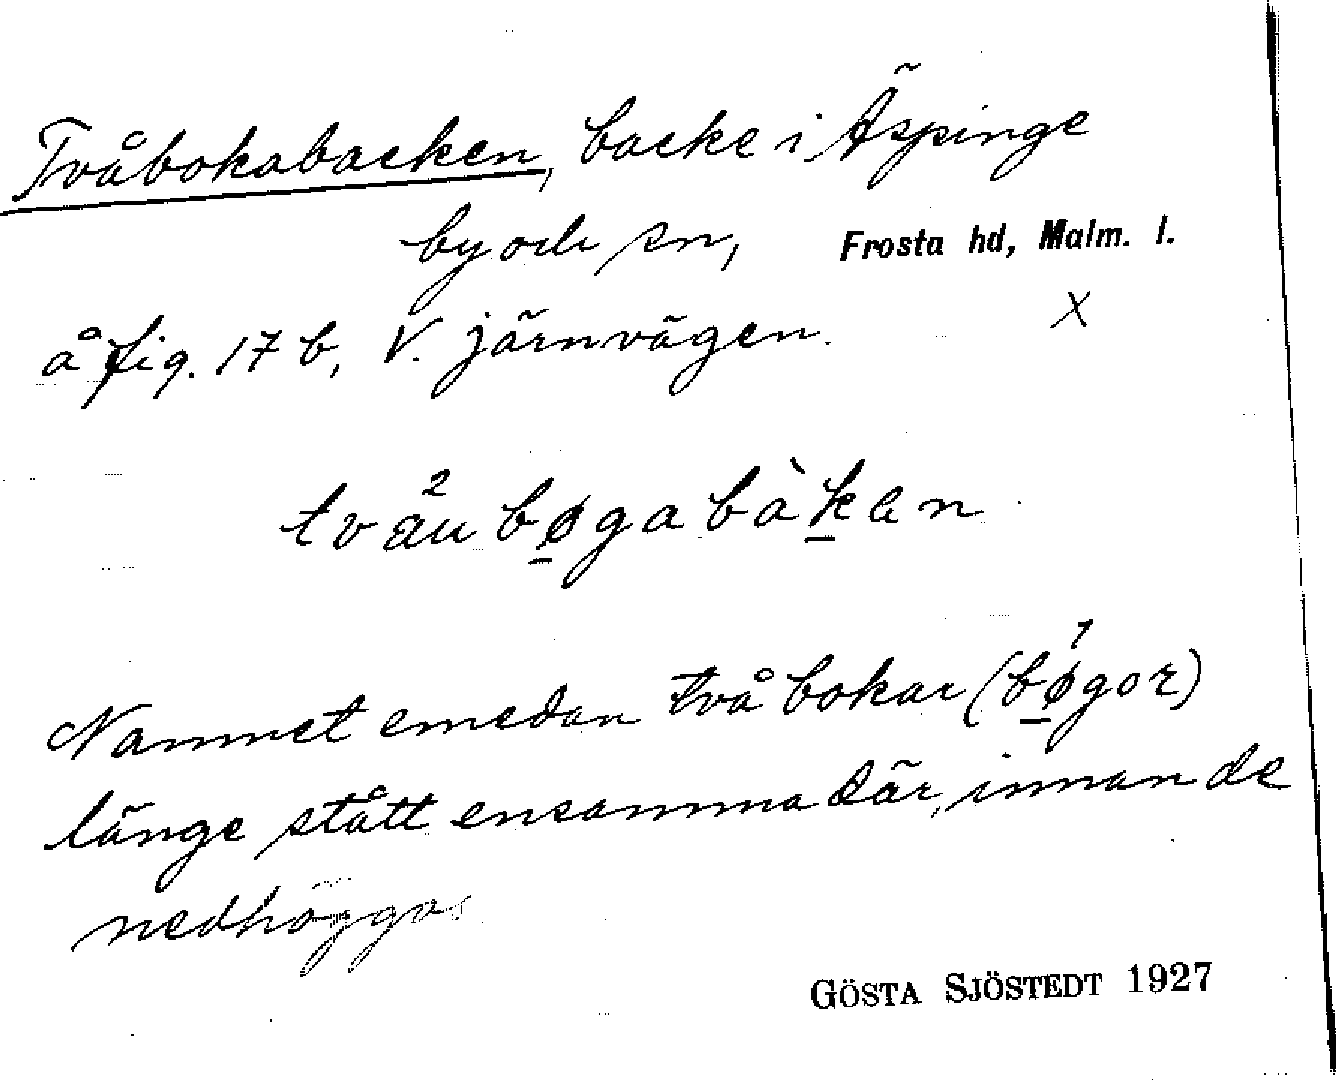 Tvåbokabacken, backe i Äspinge
by och sn, Frosta hd, Malm. l.
å fig. 17 b, V. järnvägen. X
tvåu²bøgabàkan
Namnet emedan två bokar (bø´gor)
länge stått ensamma där, innan de
nedhöggos
GÖSTA SJÖSTEDT 1927